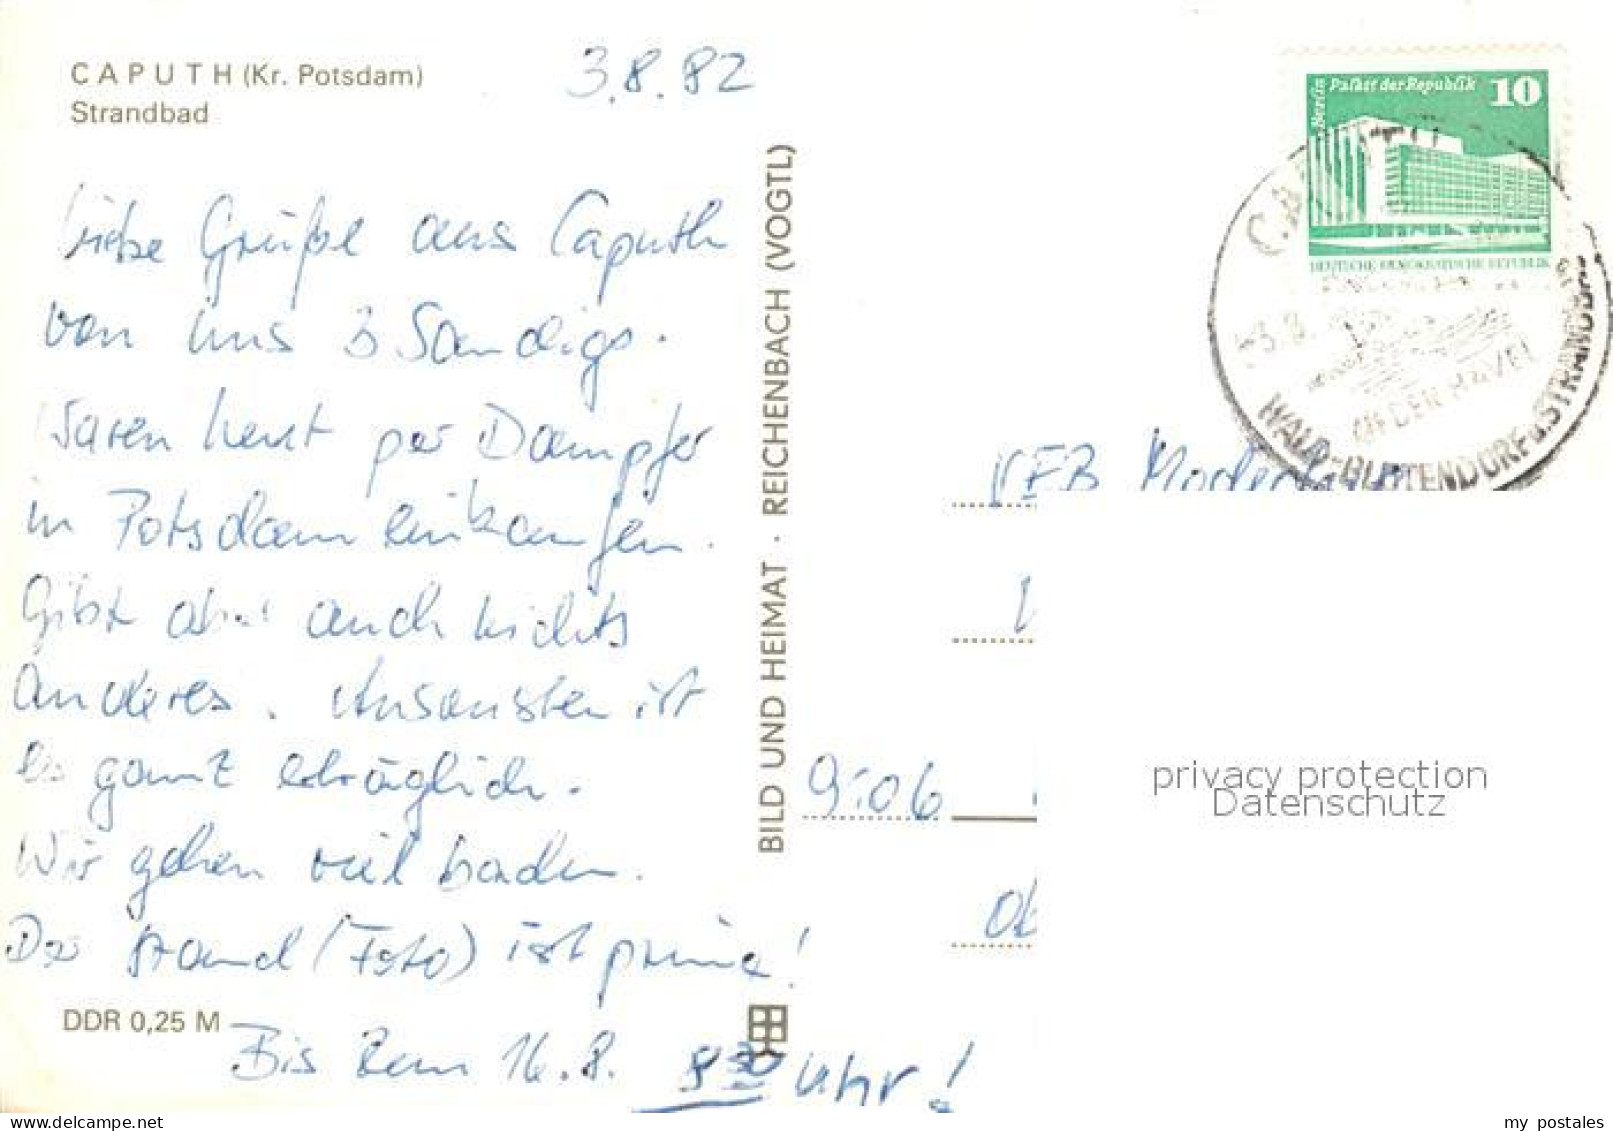 CAPUTH (Kr. Potsdam)
Strandbad
3.8.82
Liebe Grüße aus Caputh
von uns 3 Sandigs.
Waren heut per Dampfer
in Potsdam einkaufen.
Gibt aber auch nichts
anderes. Ansonsten ist
es ganz erträglich.
Wir gehen viel baden.
Der Strand (Foto) ist prima!
Bis zum 16.8. 8 30 Uhr!
DDR 0,25 M
BILD UND HEIMAT · REICHENBACH (VOGTL)
Berlin Palast der Republik 10
DEUTSCHE DEMOKRATISCHE REPUBLIK
CAPUTH
AN DER HAVEL
WALD-BLÜTENDORF u. STRANDBAD
VEB
privacy protection
Datenschutz
delcampe.net
my postales